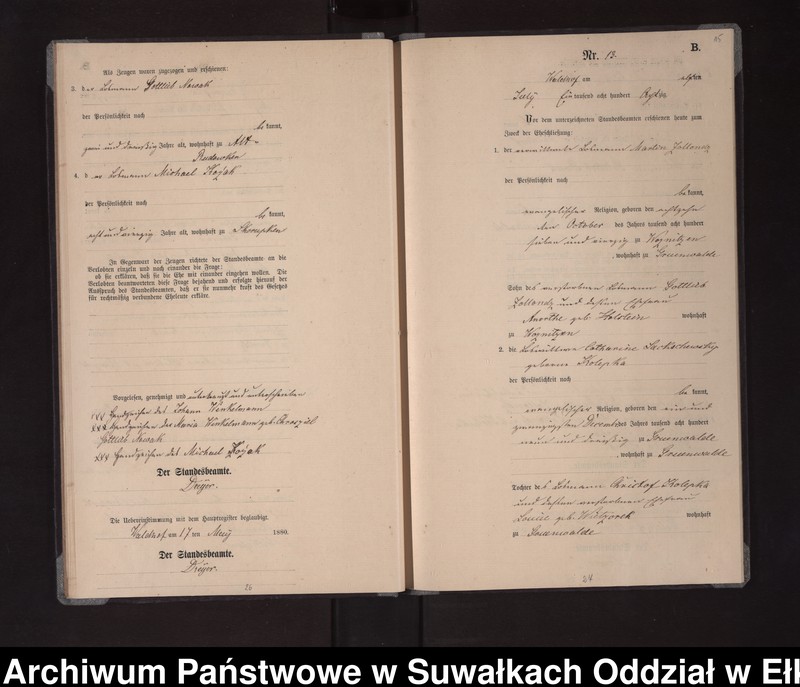 Als Zeugen waren zugezogen und erschienen:
3. der Losmann Gottlieb Nowak
der Persönlichkeit nach
be kannt,
zwei und dreißig Jahre alt, wohnhaft zu Alt-
Rudowken
4. der Losmann Michael Kozak
der Persönlichkeit nach
be kannt,
acht und vierzig Jahre alt, wohnhaft zu
In Gegenwart der Zeugen richtete der Standesbeamte an die
Verlobten einzeln und nach einander die Frage:
ob sie erklären, daß sie die Ehe mit einander eingehen wollen. Die
Verlobten beantworteten diese Frage bejahend und erfolgte hierauf der
Ausspruch des Standesbeamten, daß er sie nunmehr kraft des Gesetzes
für rechtmäßig verbundene Eheleute erkläre.
Vorgelesen, genehmigt und unterkreuzt und unterschrieben
XXX Handzeichen des Johann Winkelmann
XXX Handzeichen der Maria Winkelmann geb.
Gottlieb Nowak
XXX Handzeichen des Michael Kozak
Der Standesbeamte.
Dreyer.
Die Uebereinstimmung mit dem Hauptregister beglaubigt.
Waldhof am 17 ten May 1880.
Der Standesbeamte.
Dreyer.
26
B.
Nr. 13.
Waldhof am elften
July Ein tausend acht hundert
Vor dem unterzeichneten Standesbeamten erschienen heute zum
Zweck der Eheschließung:
1. der verwittwete Losmann Martin Zollondz
der Persönlichkeit nach
be kannt,
evangelischer Religion, geboren den achtzehn
ten October des Jahres tausend acht hundert
sieben und vierzig zu Woznitzen
, wohnhaft zu Grunwalde
Sohn des verstorbenen Losmann Gottlieb
Zollondz und dessen Ehefrau
geb. wohnhaft
zu Woznitzen
2. die Loswittwe Catharine
geborene Kolepka
der Persönlichkeit nach
be kannt,
evangelischer Religion, geboren den ein und
zwanzigsten December des Jahres tausend acht hundert
neun und dreißig zu Grunwalde
, wohnhaft zu Grunwalde
Tochter des Losmann Christof Kolepka
und dessen verstorbenen Ehefrau
Louise geb. wohnhaft
zu Grunwalde
Archiwum Państwowe w Suwałkach Oddział w Ełk